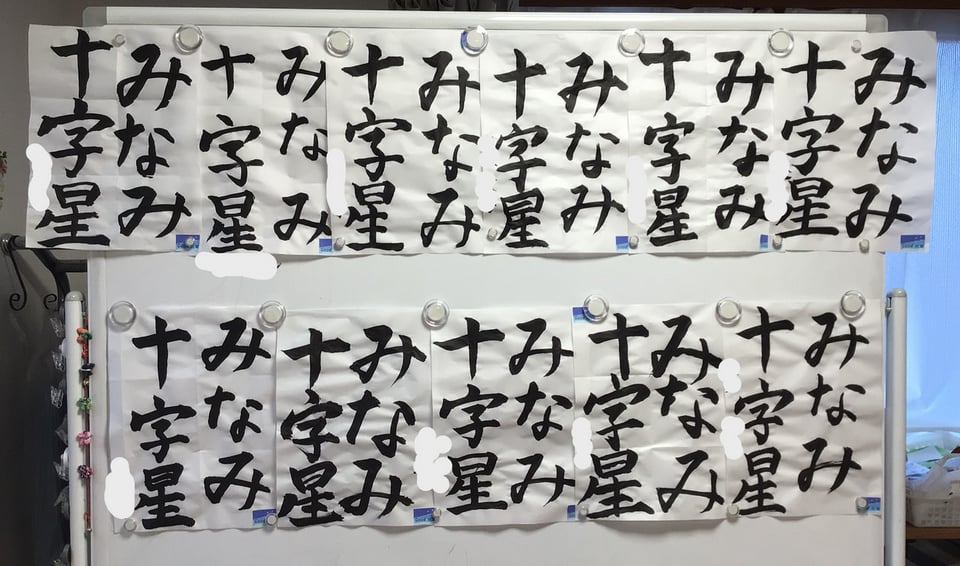 みなみ
十字星
みなみ
十字星
みなみ
十字星
みなみ
十字星
みなみ
十字星
みなみ
十字星
みなみ
十字星
みなみ
十字星
みなみ
十字星
みなみ
十字星
みなみ
十字星